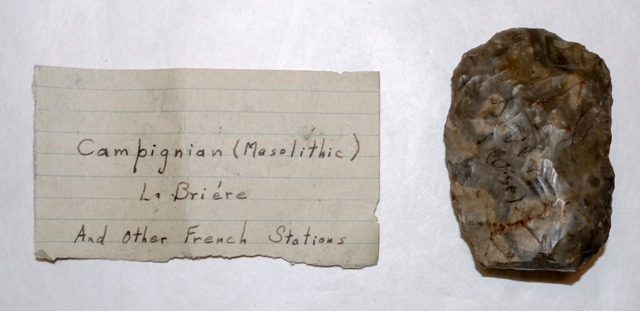 Campignian (Masolithic)
La Briére
And Other French Stations